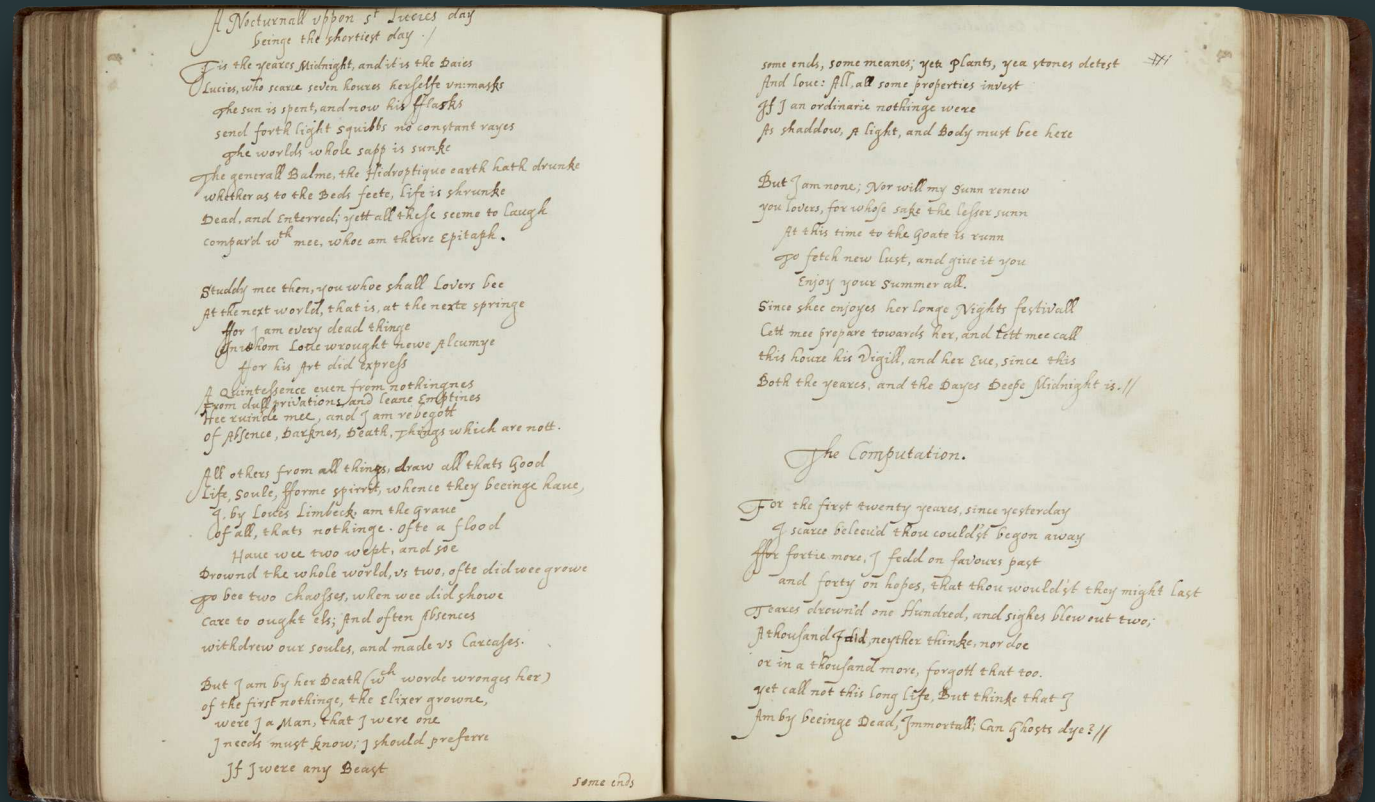 A Nocturnall vppon st Lucies day
beinge the shortiest day ./
Tis the yeares Midnight, and it is the Daies
Lucies, who scarce seven houres herselfe vn:masks
The sun is spent, and now his fflasks
send forth light squibbs no constant rayes
The worlds whole sapp is sunke
The generall Balme, the Hidroptique earth hath drunke
whether as to the Beds feete, life is shrunke
Dead, and Enterred; yett all these seeme to laugh
compar'd wth mee, whoe am theire Epitaph.
Studdy mee then, you whoe shall Lovers bee
At the next world, that is, at the nexte springe
ffor I am every dead thinge
In whom Loue wrought newe Alcumye
ffor his Art did Express
A Quintessence even from nothingnes
From dull privations, and leane Emptines
Hee ruin'de mee, and I am rebegott
of Absence, Darknes, Death, Things which are nott.
All others from all things, draw all thats Good
Life, Soule, fforme spirrit, whence they beeinge haue,
I, by Loues Limbeck, am the Graue
Of all, thats nothinge. Ofte a flood
Haue wee two wept, and soe
Drownd the whole world, vs two, ofte did wee growe
To bee two Chaosses, when wee did showe
Care to ought els; And often Absences
withdrew our soules, and made vs Carcases.
But I am by her Death (wch worde wronges her)
of the first nothinge, the Elixer growne,
were I a Man, that I were one
I needs must know; I should preferre
If I were any Beast
some ends
some ends, some meanes; yea Plants, yea stones detest
And loue: All, all some properties invest
If I an ordinarie nothinge were
As shaddow, A light, and Body must bee here
But I am none; Nor will my Sunn renew
you lovers, for whose sake the lesser sunn
At this time to the Goate is runn
To fetch new lust, and giue it you
Enjoy your Summer all.
Since shee enjoyes her longe Nights festivall
Lett mee prepare towards her, and lett mee call
this houre his Vigill, and her Eue, since this
Both the yeares, and the Dayes Deepe Midnight is.//
The Computation.
For the first twenty yeares, since yesterday
I scarce beleeu'd thou could'st begon away
ffor fortie more, I fedd on favours past
and forty on hopes, that thou would'st they might last
Teares drown'd one Hundred, and sighes blew out two;
A thousand I did, neyther thinke, nor doe
or in a thousand more, forgott that too.
yet call not this long life, But thinke that I
Am by beeinge Dead, Immortall; Can Ghosts dye?//